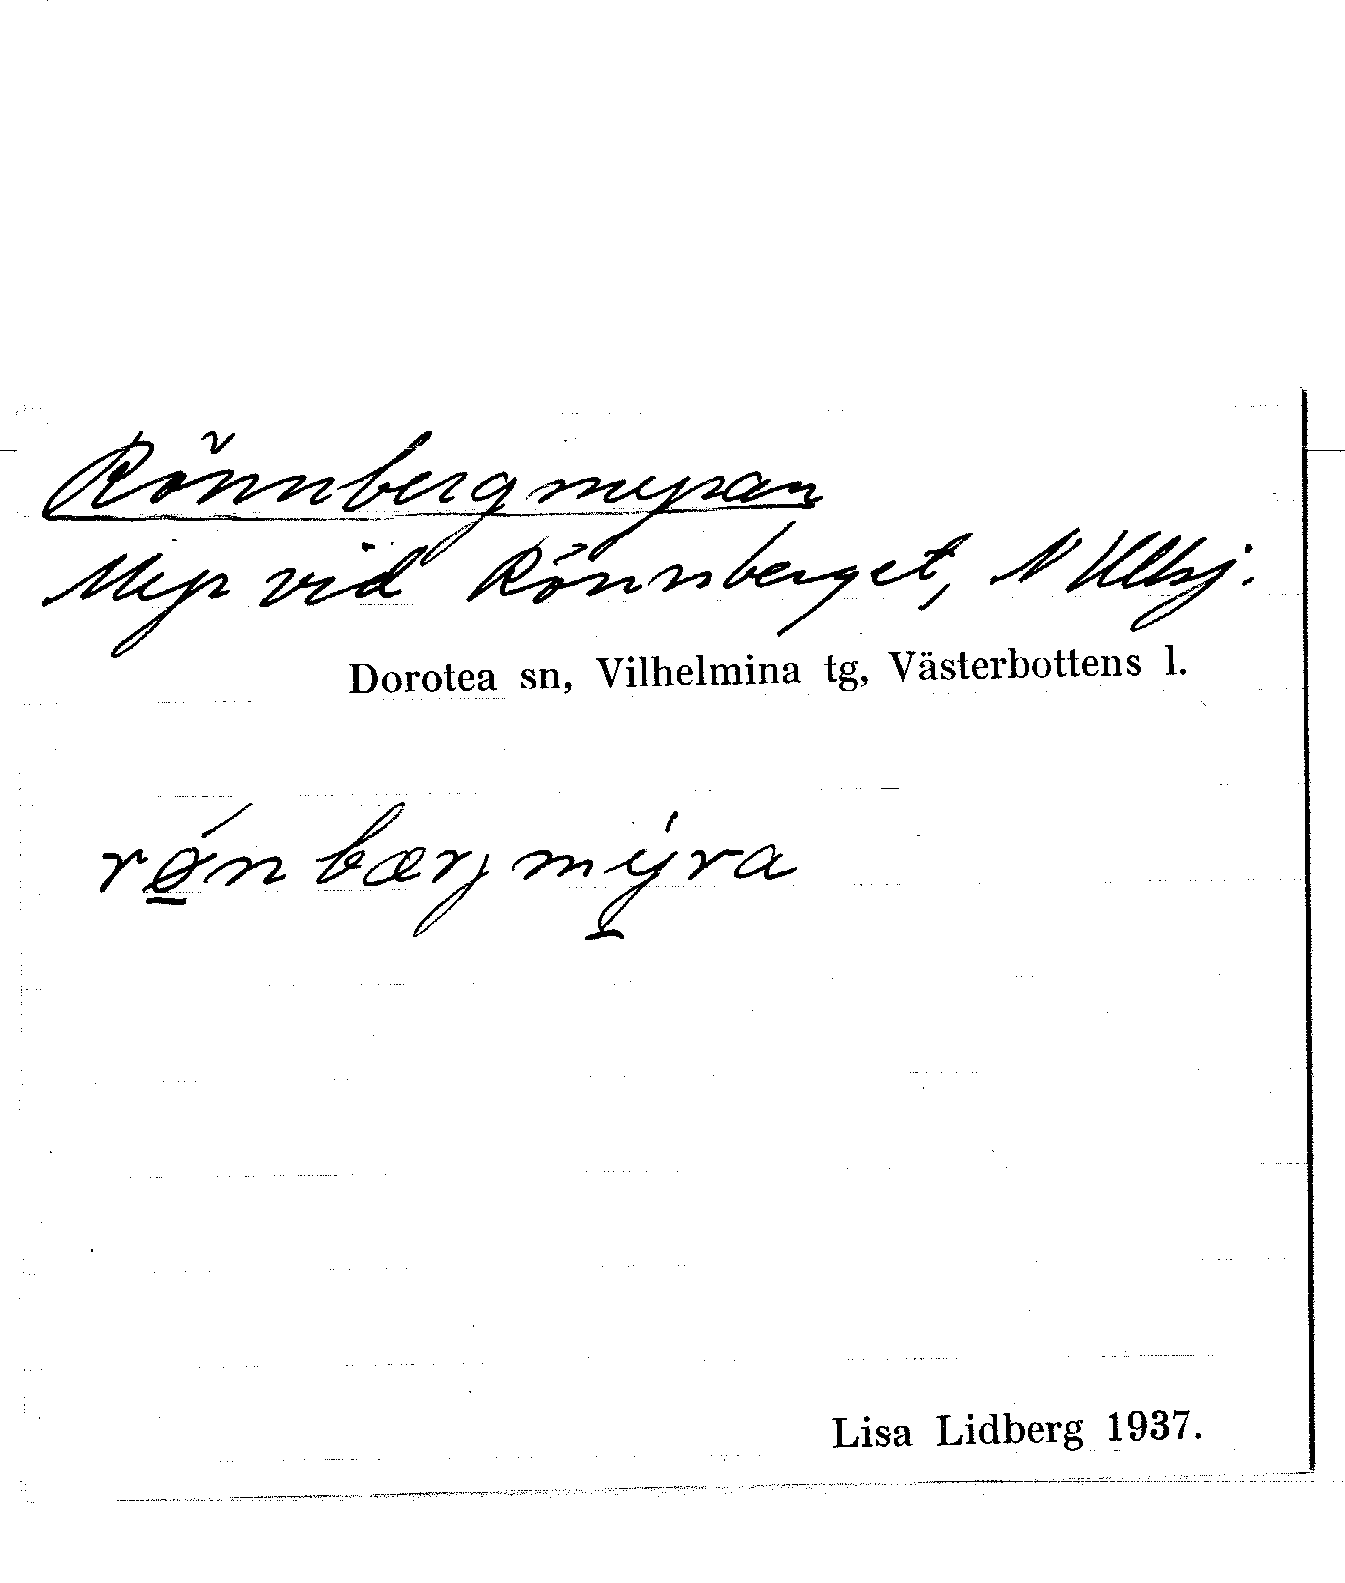 Rönnbergmyran
Myr vid Rönnberget, N Ullsj.
Dorotea sn, Vilhelmina tg, Västerbottens l.
rǿ̱nbærjmý̱ra
Lisa Lidberg 1937.